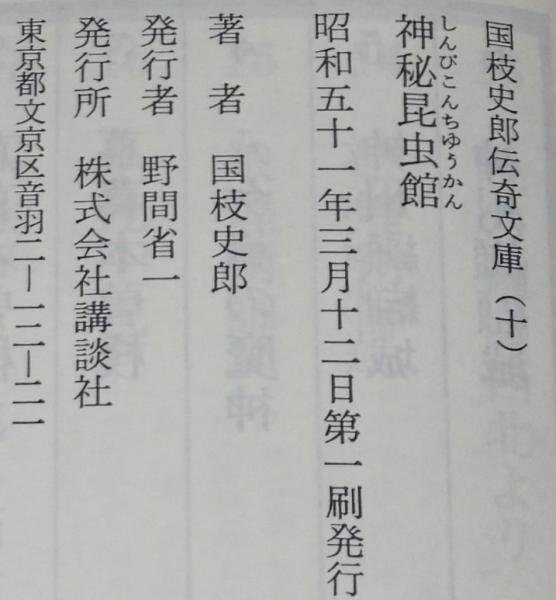 国枝史郎伝奇文庫(十)
しんぴこんちゅうかん
神秘昆虫館
昭和五十一年三月十二日第一刷発行
著 者 国枝史郎
発行者 野間省一
発行所 株式会社講談社
東京都文京区音羽二―一二―二一